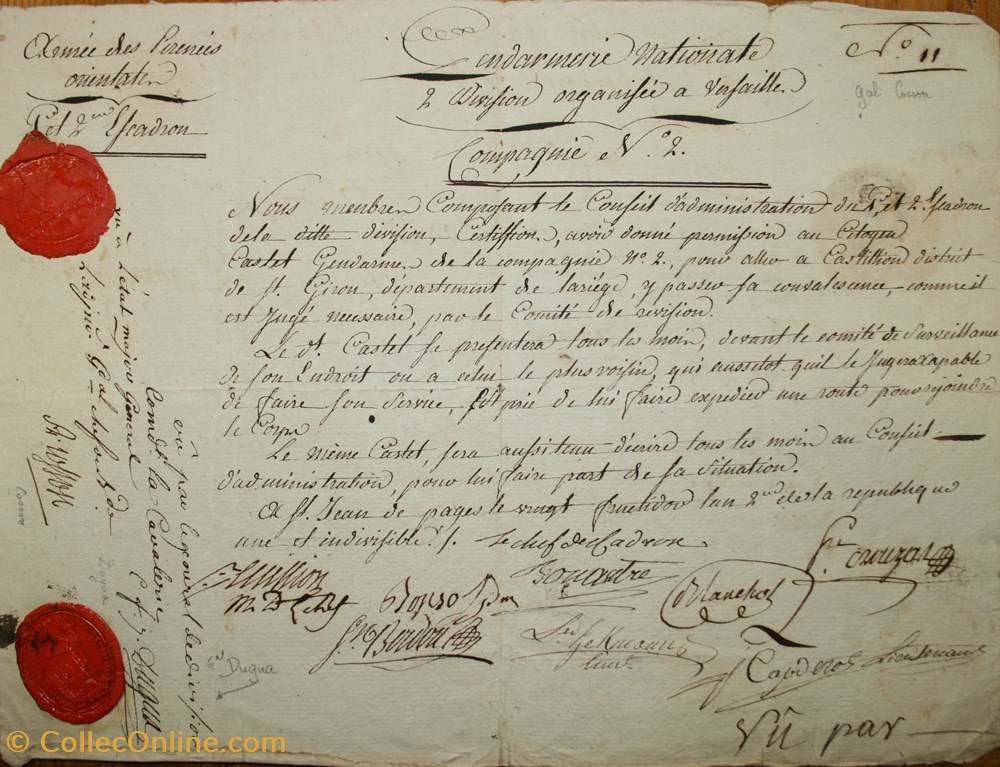 Armée des Pirenées
orientales
1er et 2me Escadron
Gendarmerie Nationale
2 Division organisée a Versaille
Compagnie N.o 2.
N.o 11
gal
Nous membres Composant le Conseil d'administration du 1er et 2 Escadron
de la ditte division, Certiffions, avoir donné permission au Citoyen
Castet Gendarme de la compagnie No 2, pour aller a Castillion district
de St. Giron, département de lariége, y passer sa convalescence, comme il
est Jugé necessaire, par le Comité de révision.
Le dt. Castet se presentera tous les mois, devant le comité de Surveillance
de son Endroit ou a celui le plus voisin, qui aussitot quil le Jugera Capable
de faire son Service, est prié de lui faire expedier une route pour rejoindre
le Corps
Le même Castet, sera aussi tenu décrire tous les mois au Conseil
d'administration, pour lui faire part de sa situation.
A St. Jean de pages le vingt fructidor lan 2me de la republique
une et indivisible ./. Le chef descadron
Blanchot
Lieut
Capderos Lieutenant
Vû par
vu à L'état major General
vû par le general de division
Comdt. la Cavalerie
Dugua
Gal Dugua
Dugua
© CollecOnline.com